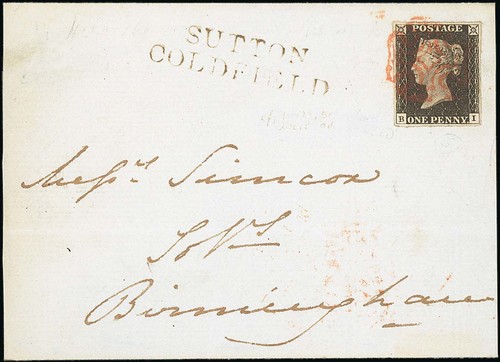 SUTTON
COLDFIELD
POSTAGE
B ONE PENNY I
Messrs. Simcox
Solrs
Birmingham